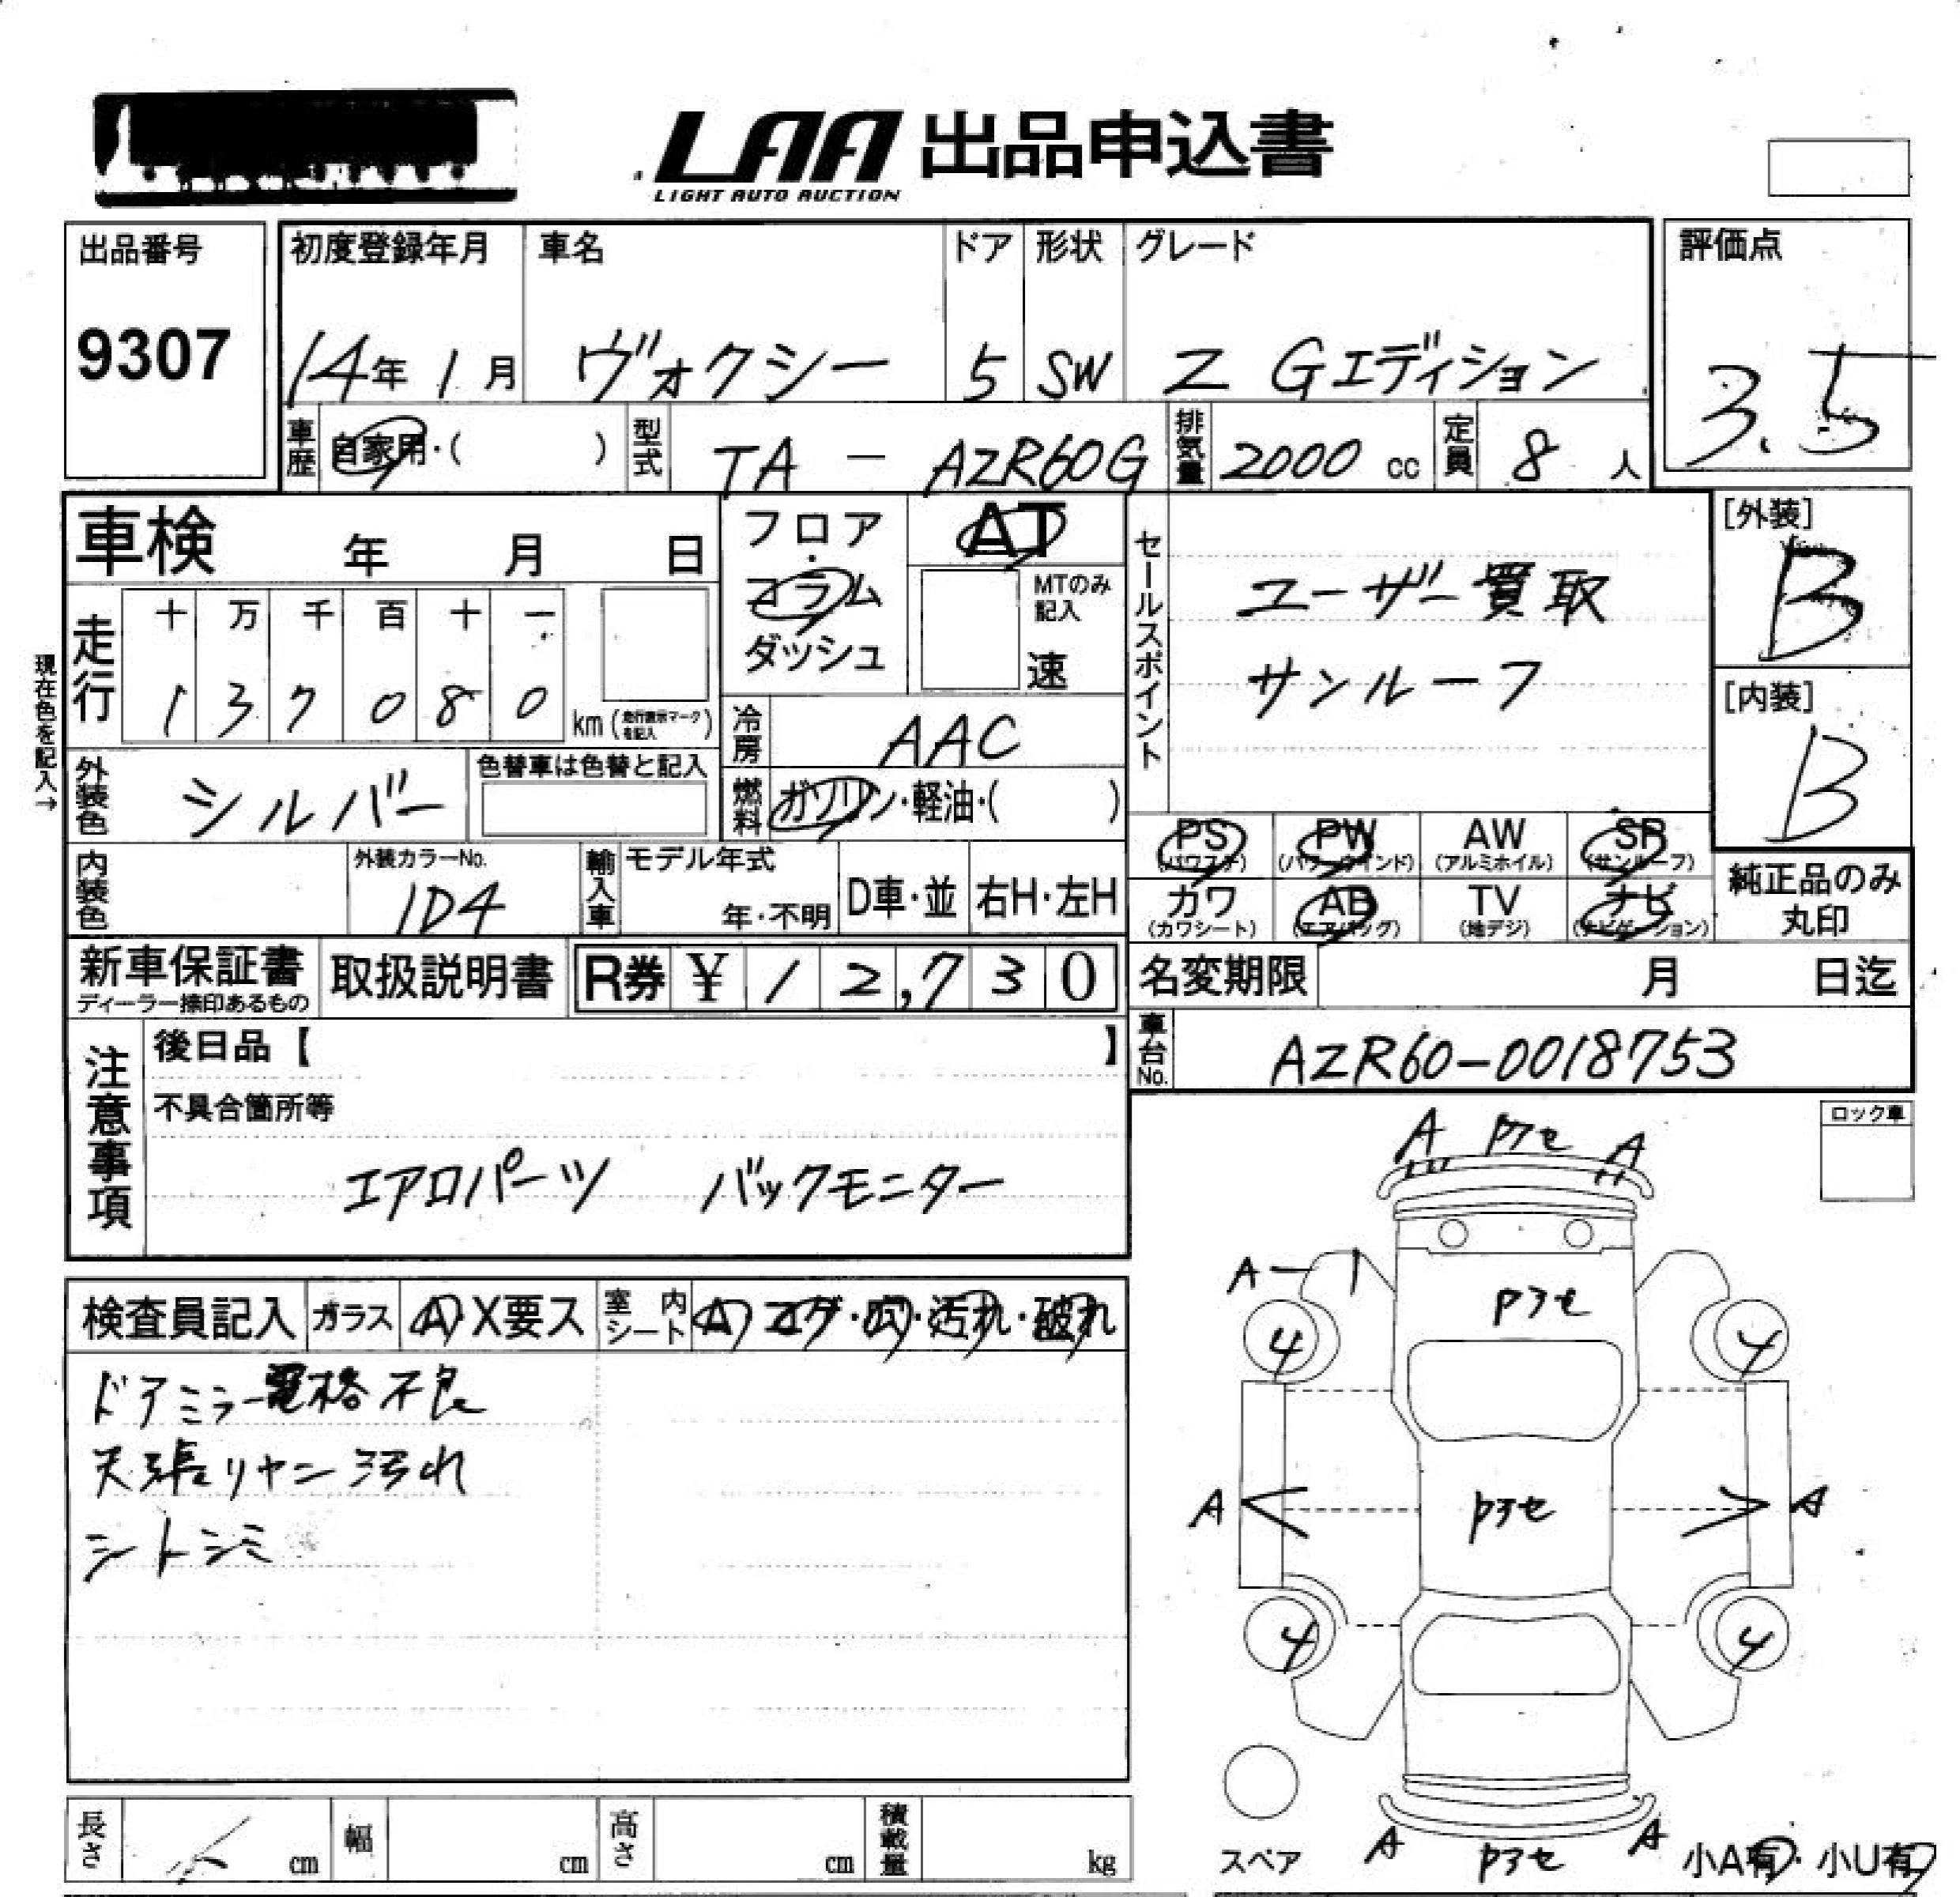 LAA 出品申込書
LIGHT AUTO AUCTION
出品番号
9307
初度登録年月
14年 1月
車名
ヴォクシー
ドア
5
形状
SW
グレード
Z Gエディション
評価点
3.5
車歴 自家用・( )
型式 TA - AZR60G
排気量 2000 cc
定員 8 人
車検 年 月 日
フロア・コラム
ダッシュ
AT
MTのみ
記入
速
セールスポイント
ユーザー買取
サンルーフ
[外装]
B
[内装]
B
現在色を記入→
走行
十 万 千 百 十 一
1 3 7 0 8 0
km (走行表示マークを記入)
冷房 AAC
外装色 シルバー
色替車は色替と記入
燃料 ガソリン・軽油・( )
PS AB PW AW SR
(パワステ) (パワーウインド) (アルミホイル) (サンルーフ)
カワ AB TV ナビ
(カワシート) (エアバッグ) (地デジ) (ナビゲーション)
純正品のみ
丸印
内装色
外装カラーNo.
1D4
輸入車
モデル年式
年・不明
D車・並
右H・左H
新車保証書
ディーラー捺印あるもの
取扱説明書
R券 ¥ 1 2,7 3 0
名変期限 月 日迄
車台No. AZR60-0018753
注意事項
後日品【 】
不具合箇所等
エアロパーツ バックモニター
ロック車
検査員記入
ガラス A X要ス
室内シート A コゲ・穴・汚れ・破れ
ドアミラー電格不良
天張リヤニ汚れ
シートシミ
A Pアセ A
A 1
Pアセ
4 4
A Pアセ A
4 4
スペア
A Pアセ A
小A有・小U有
長さ cm
幅 cm
高さ cm
積載量 kg